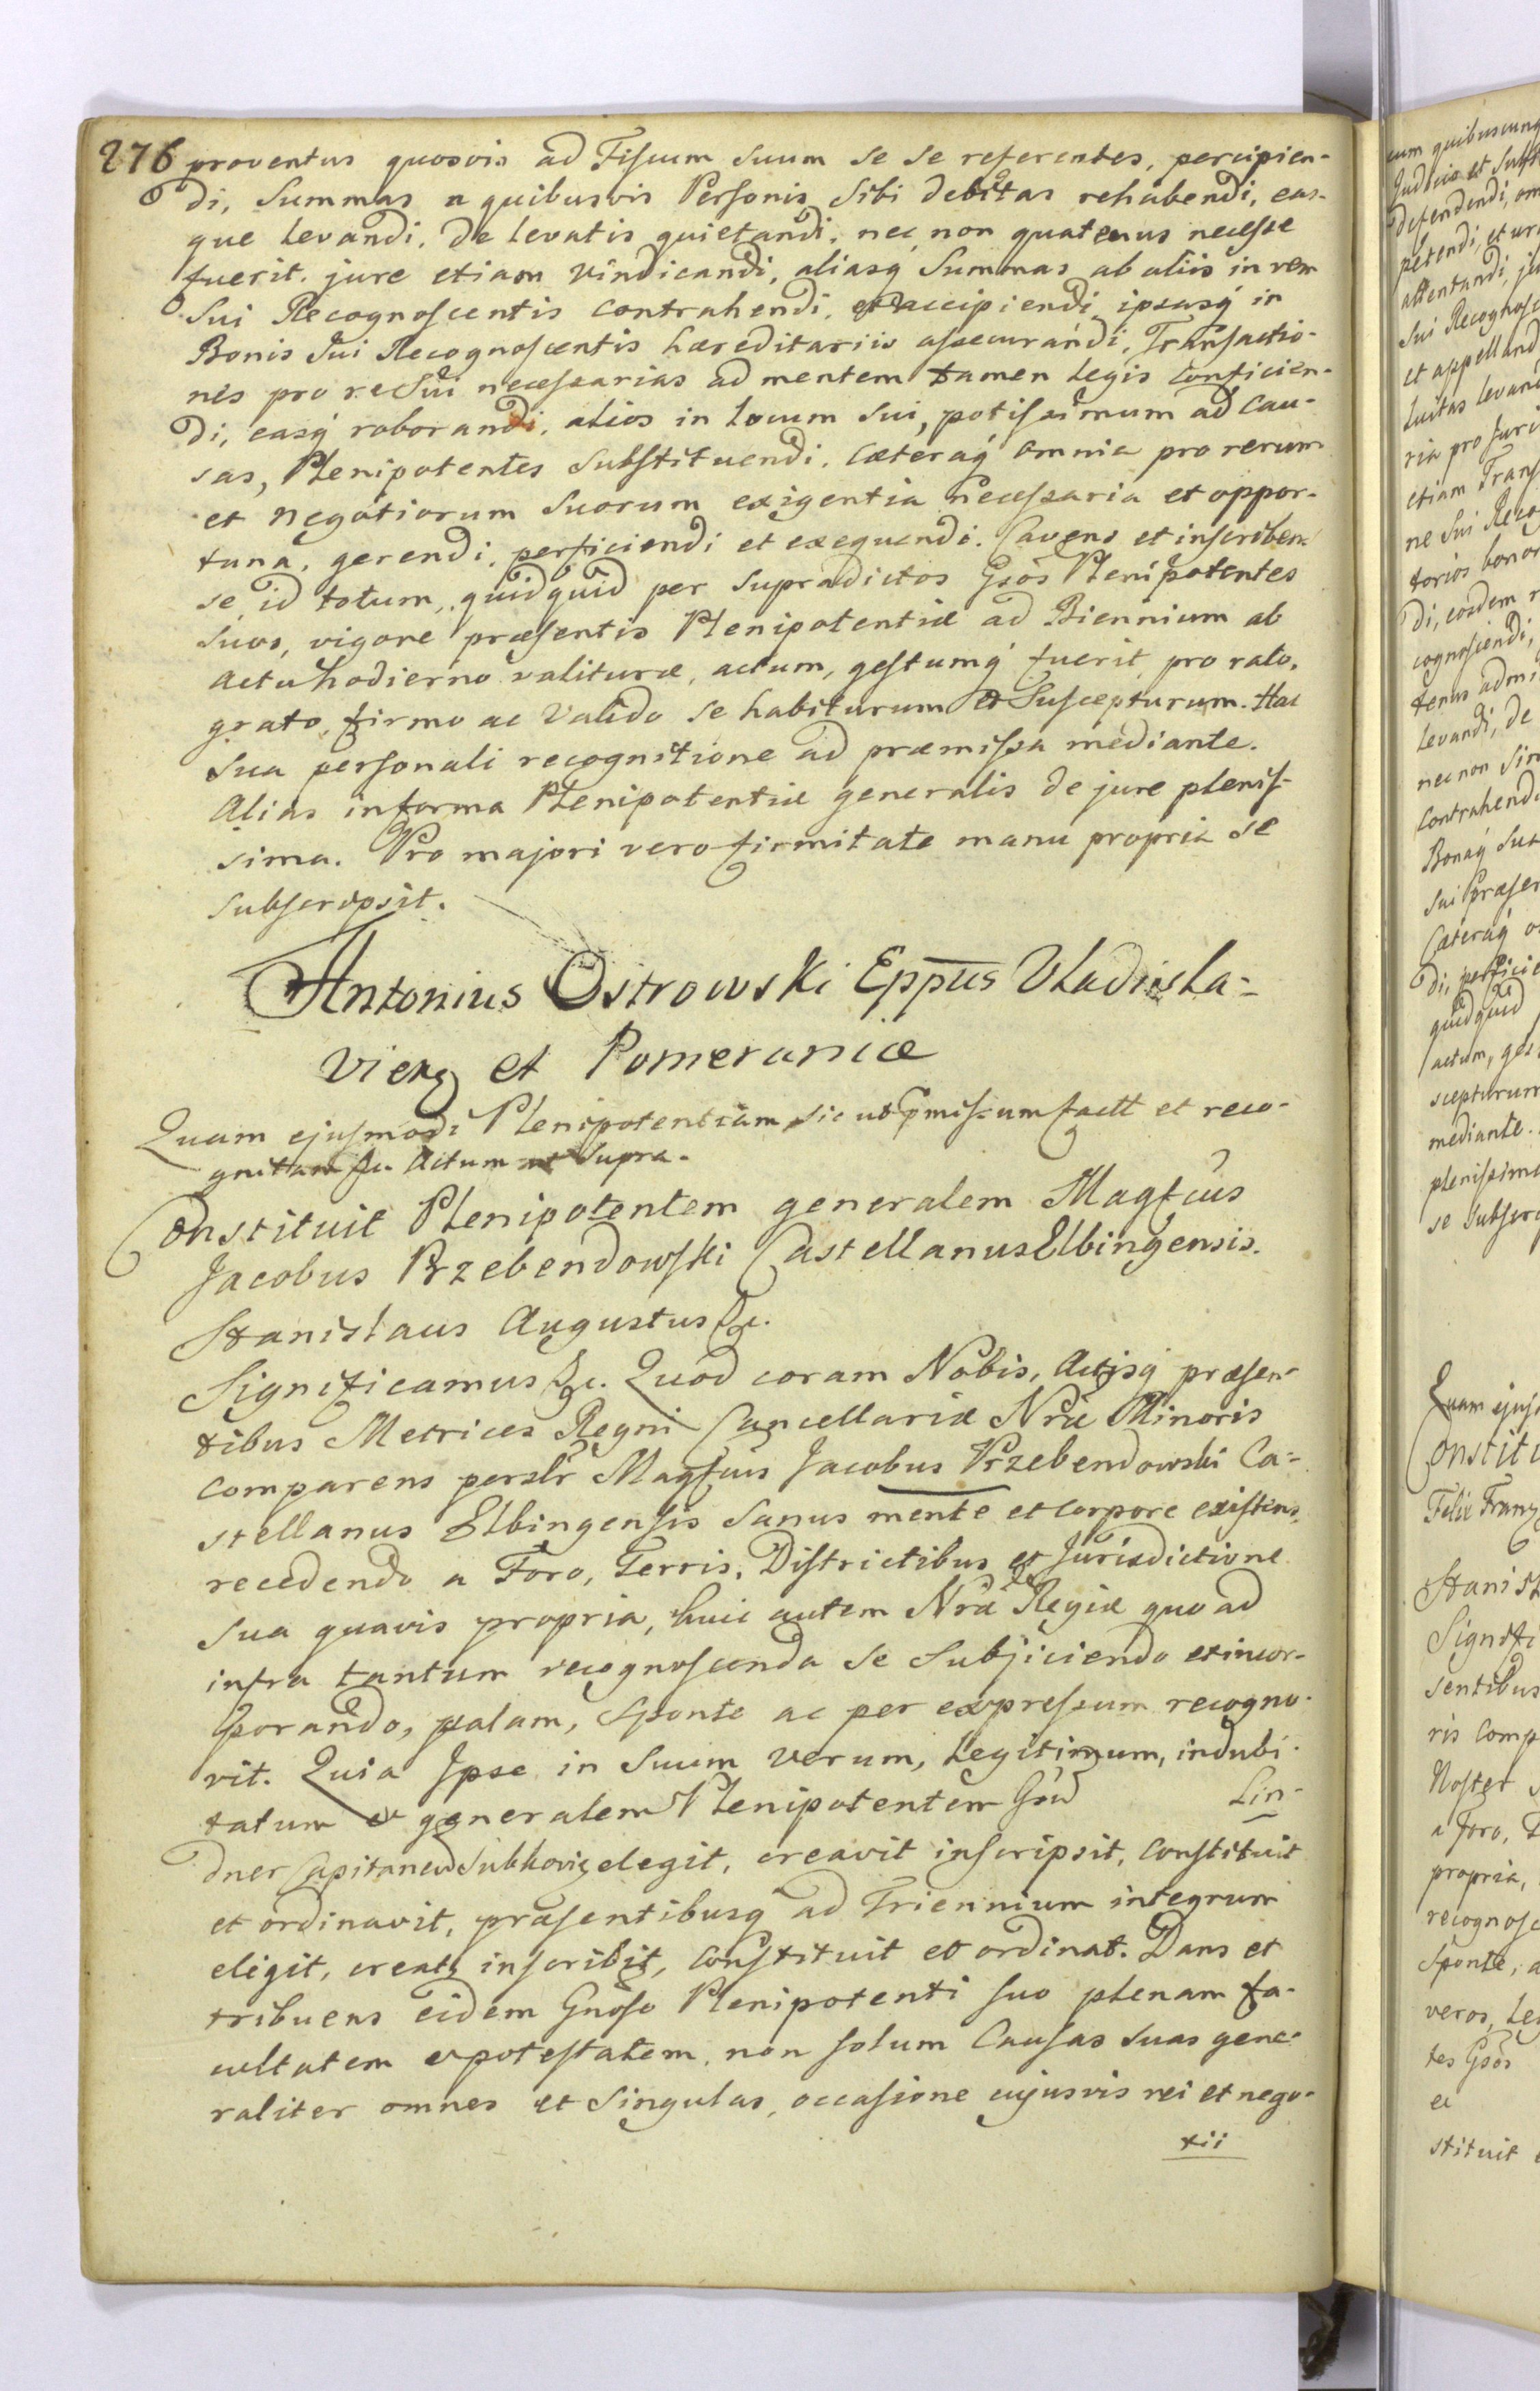 276 proventus quosvis ad Fiscum suum se se referentes, percipien-
di, Summas a quibusvis Personis sibi debitas rehabendi, eas-
que levandi, de levatis quietandi, nec non quatenus necesse
fuerit jure etiam vindicandi, aliasq́ Summas ab aliis in rem
sui Recognoscentis contrahendi, et accipiendi ipsasq́ in
Bonis Sui Recognoscentis haereditariis assecurandi, Transactio-
nes pro re Sui necessarias ad mentem tamen legis conficien-
di, easq́ roborandi, alios in locum sui, potissimum ad Cau-
sas, Plenipotentes substituendi, caeteraq́ omnia pro rerum
et negotiorum suorum exigentia necessaria et oppor-
tuna, gerendi, perficiendi et exequendi. Cavens et inscriben
se id totum, quidquid per supradictos Gsos Plenipotentes
suos, vigore praesentis Plenipotentiae ad Biennium ab
actu hodierno valiturae, actum, gestumq́ fuerit, pro rato,
grato, firmo ac valido se habiturum et suscepturum. Hac
sua personali recognitione ad praemissa mediante.
Alias in forma Plenipotentiae generalis de jure plenis-
sima. Pro majori vero firmitate manu propria se
subscripsit.
Antonius Ostrowski Eppus Vladisla-
vien et Pomeraniae
Quam ejusmodi Plenipotentiam sic ut pmissum fact et reco-
gnitam &c. Actum ut supra.
Constituit Plenipotentem generalem Magfcus
Jacobus Przebendowski Castellanus Elbingensis.
Stanislaus Augustus &c.
Significamus &c. Quod coram Nobis, Actisq́ praesen-
tibus Metrices Regni Cancellariae Nrae Minoris
comparens perslr Magfcus Jacobus Przebendowski Ca-
stellanus Elbingensis sanus mente et corpore existens,
recedendo a Foro, Terris, Districtibus et Jurisdictione
sua quavis propria, huic autem Nrae Regiae quo ad
infra tantum recognoscenda se subjiciendo et incor-
porando, palam, sponte ac per expressum recogno-
vit. Quia Ipse in suum verum, legitimum, indubi-
tatum et generalem Plenipotentem Gsum Lin-
dner Capitaneum Subkovien elegit, creavit inscripsit, constituit
et ordinavit, praesentibusq́ ad Triennium integrum
eligit, creat, inscribit, constituit et ordinat. Dans et
tribuens eidem Gnoso Plenipotenti suo plenam fa-
cultatem et potestatem, non solum Causas suas gene-
raliter omnes et singulas, occasione cujusvis rei et nego-
tii